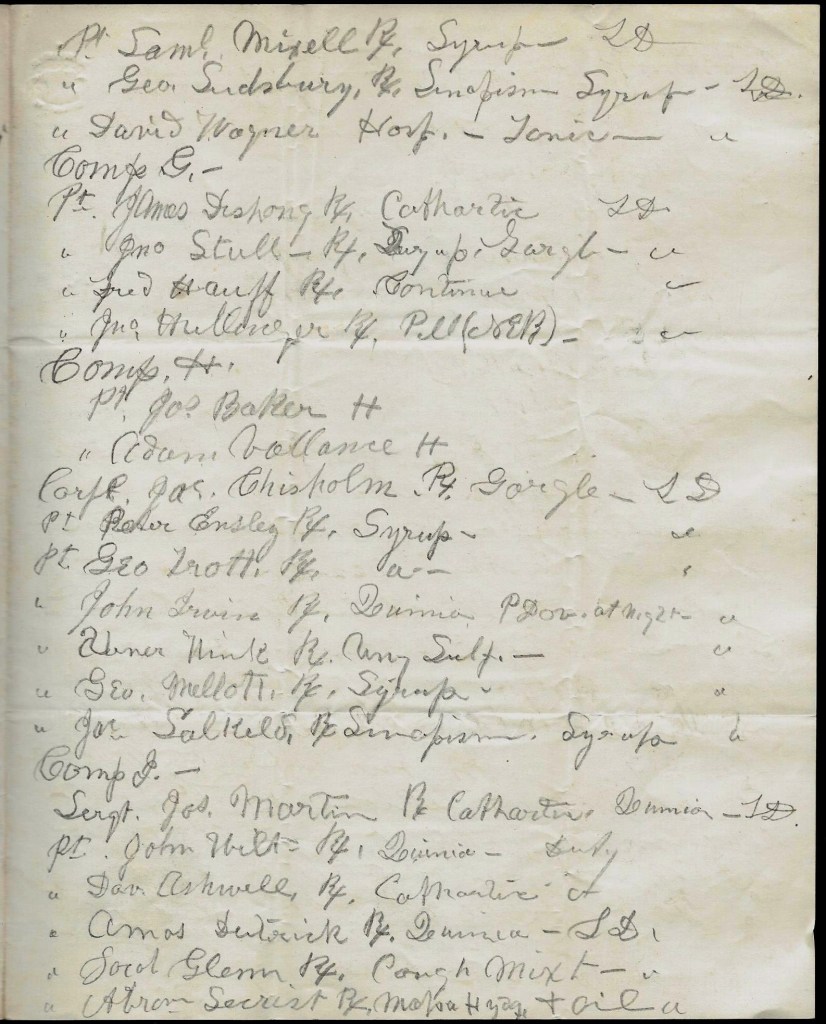 Pt. Saml. Mixell Rx, Syrup — LD
" Geo. Sudsbury, Rx, Sinapism Syrup - LD.
" David Wagner Hosp. — Tonic — "
Comp G. —
Pt. James Deshong Rx, Cathartic LD.
" Jno Stull — Rx, Syrup, Gargle — "
" Fred Hauff Rx, Continue "
" Jno. Rx, Pill — "
Comp. H.
Pt. Jos Baker H
" Adam Vallance H
Corpl. Jas. Chisholm. Rx. Gargle — LD
Pt Peter Ensley Rx, Syrup — "
Pt. Geo Trott, Rx, " — "
" John Irvin Rx, Quinia P Dov. at night — "
" Abner Hink Rx. Ung Sulf. — "
" Geo. Mellott, Rx, Syrup - "
" Jos Salkeld, Rx Sinapism. Syrup "
Comp I. —
Sergt. Jos. Martin Rx Cathartic. Quinia — LD.
Pt. John Wilt — Rx, Quinia — Duty
" Dav. Ashwell, Rx, Cathartic "
" Amos Detrick Rx. Quinia — LD.
" Jacob Glenn Rx, Cough Mixt — "
" Abram Secrist Rx, Massa Hydg + oil "